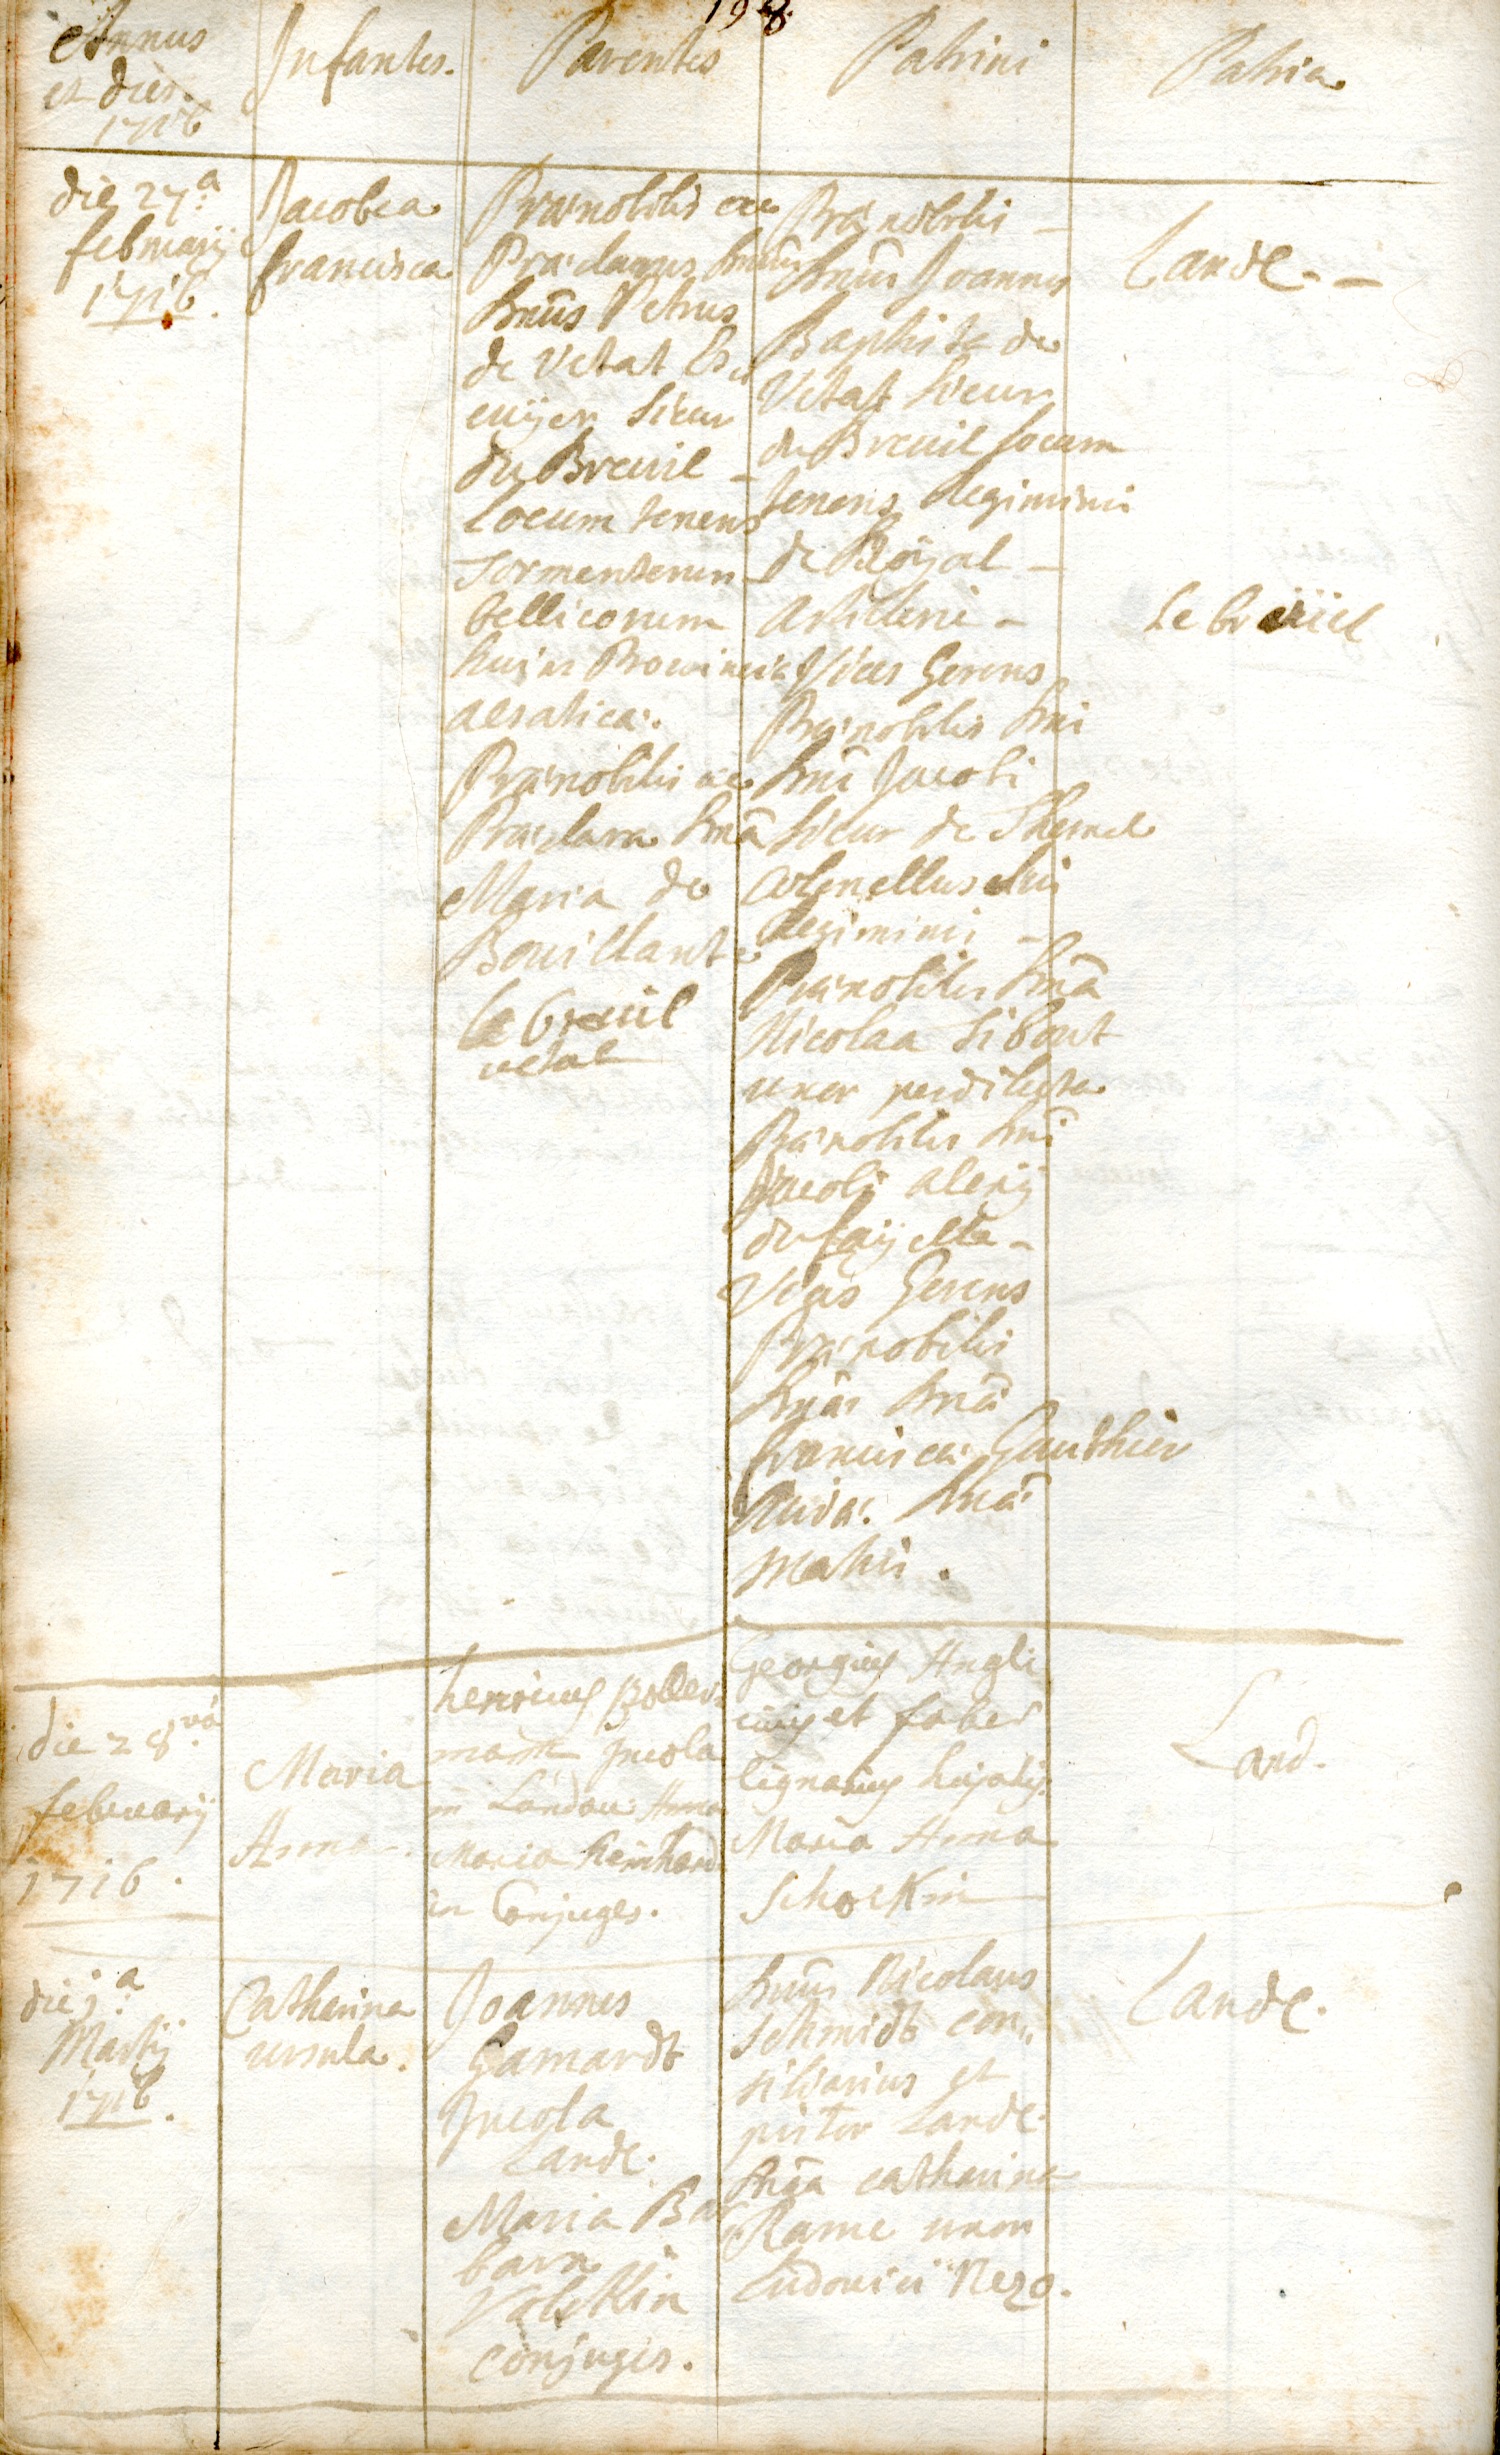 198.
Annus
et dies.
1716
Infantes.
Parentes
Patrini
Patria
die 27.a
februarij
1716.
Jacobea
francisca
Prænobilis ac
Præclarus
Dnus Petrus
de Vetat Es
cuijer Sieur
du Breuil -
locum tenens
Tormentorum
bellicorum
huius Provinciæ
alsaticæ.
Prænobilis ac
Præclara Dna
Maria de
Bouillante
le breuil
vetat
Prænobilis -
Dnus Joannes
Baptista de
Vetat Sieur
du Breuil locum
tenens Regiminis
de Roÿal -
Artilleri -
Vices Gerens
Prænobilis Dni
Dni Jacobi
Sieur de
Colonellus
Regiminis -
Prænobilis Dna
Nicolaa Sibout
uxor perdilecta
Prænobilis Dni
Jacobi alexij
du faij
Vices Gerens
Prænobilis
Dnæ
franciscæ Gauthier
Dnæ
matris.
Lande. -
le breüiel
die 28.va
februarij
1716.
Maria
Anna.
henricus
man Incola
in Landau Anna
Maria Reinhard
in Conjuges.
Georgius Angli
cus et faber
lignarius hujatis
Maria Anna
Schockin
Land.
die 1.a
Martij
1716.
Catharina
ursula.
Joannes
Gamardt
Incola
Lande.
Maria Bar
bara
Volckin
conjuges.
Dnus Nicolaus
Schmidt con
siliarius et
pistor Lande.
Dna catharina
Rame uxor
Ludovici Nezo.
Lande.